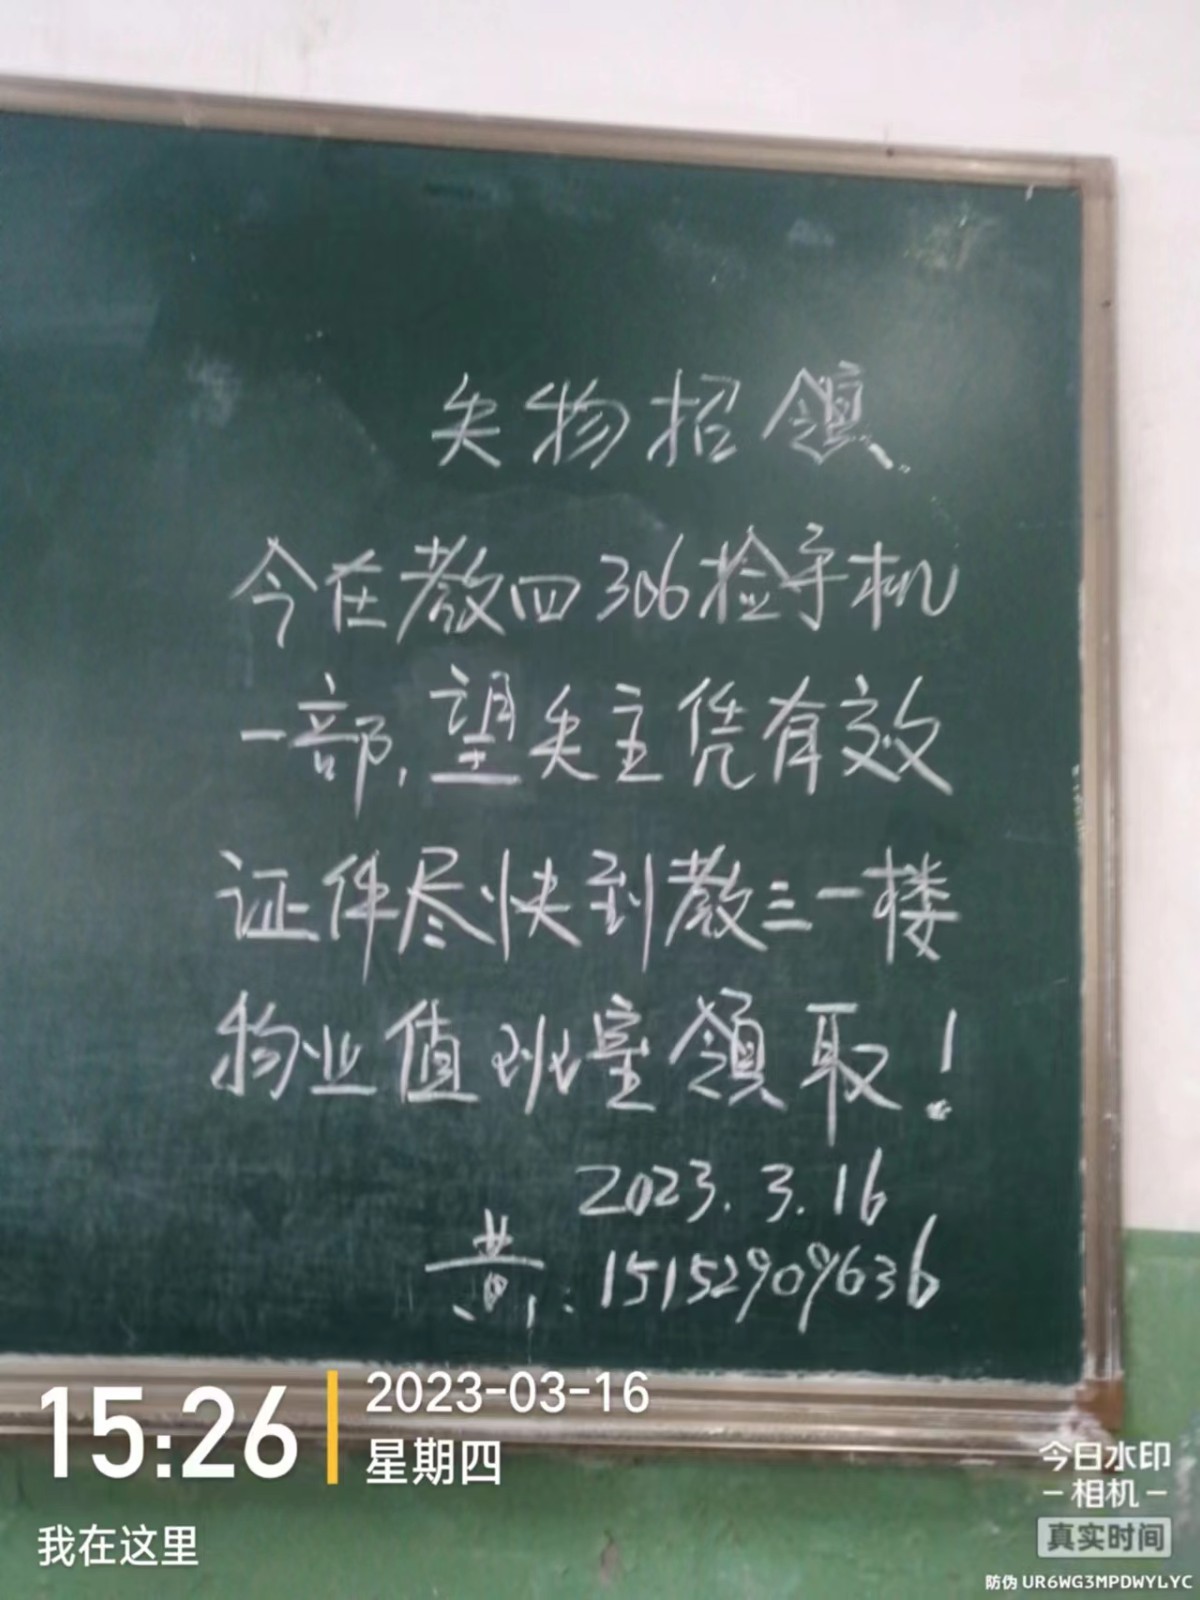 失物招领
今在教四306捡手机
一部,望失主凭有效
证件尽快到教三一楼
物业值班室领取!
2023.3.16
黄:15152909636
15:26
2023-03-16
星期四
我在这里
今日水印
-相机-
真实时间
防伪 UR6WG3MPDWYLYC